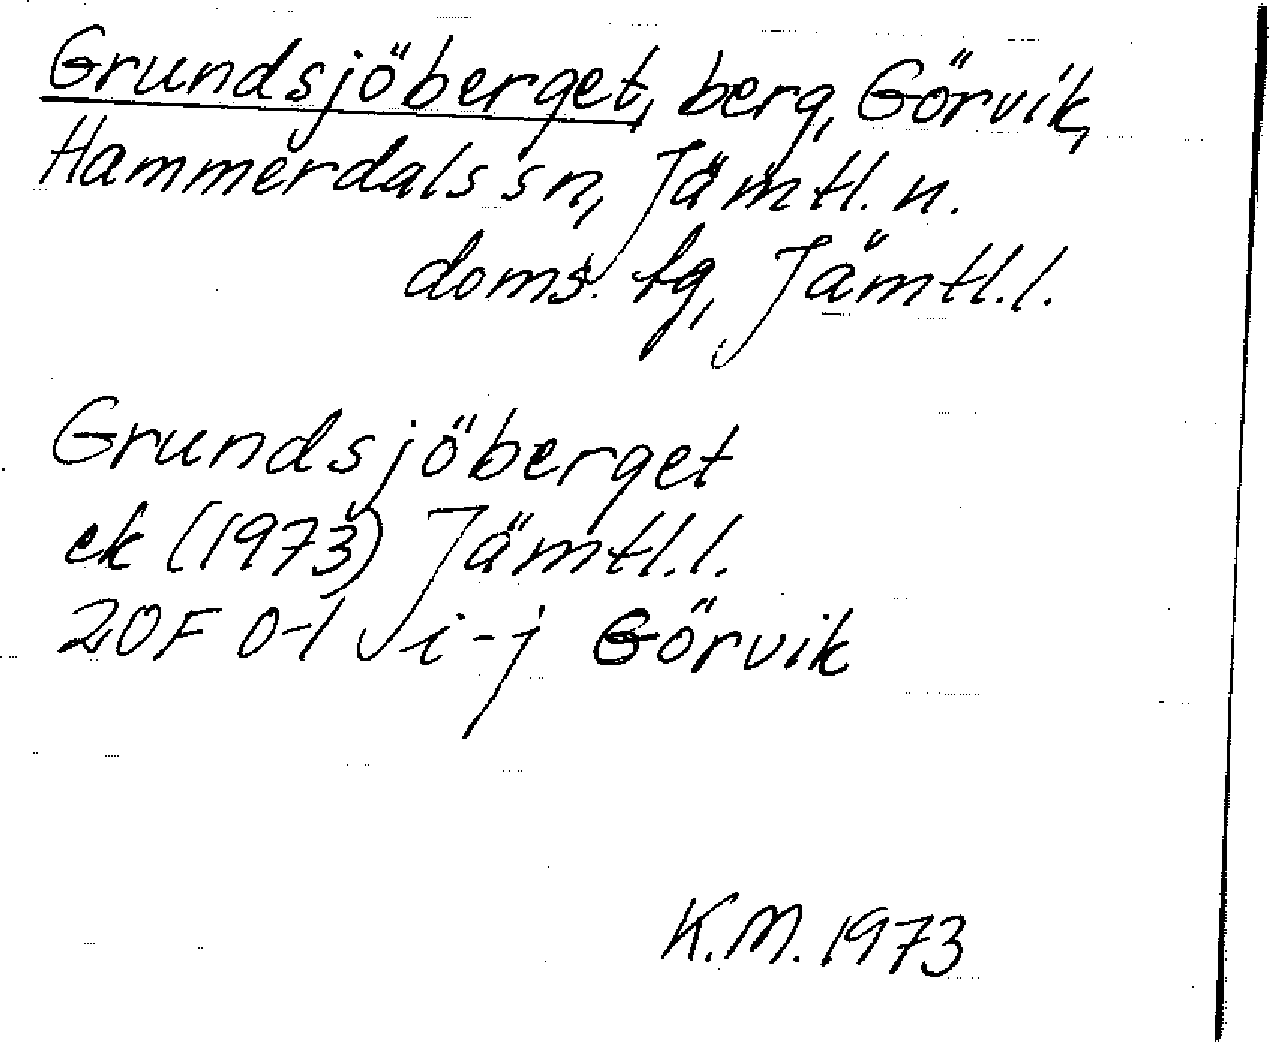 Grundsjöberget, berg, Görvik,
Hammerdals sn, Jämtl. n.
doms. fg, Jämtl. l.
Grundsjöberget
ek (1973) Jämtl. l.
20F 0-1 i-j Görvik
K.M. 1973